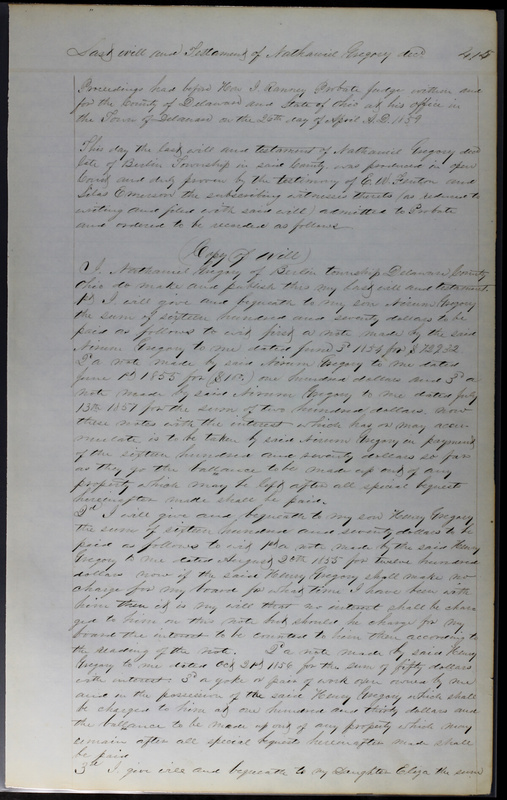 Last will and Testament of Nathaniel Gregory decd 415
Proceedings had before Hon. T. Ranney Probate Judge within and
for the County of Delaware and State of Ohio at his office in
the Town of Delaware on the 25th day of April A.D. 1859
This day the last will and testament of Nathaniel Gregory decd
late of Berlin Township in said County was produced in open
Court and duly proven by the testimony of E. W. Fenton and
Silas Emerson the subscribing witnesses thereto (as reduced to
writing and filed with said will) admitted to Probate
and ordered to be recorded as follows
(Copy of Will)
I, Nathaniel Gregory of Berlin township Delaware County
Ohio do make and publish this my last will and testament
1st I will give and bequeath to my son Gregory
the sum of sixteen hundred and seventy dollars to be
paid as follows to wit, first, a note made by the said
Gregory to me dated June 1854 for
2d a note made by said Gregory to me dated
June 1st 1855 for one hundred dollars and 3d a
note made by said Gregory to me dated July
13th 1857 for the sum of two hundred dollars, now
these notes with the interest which has or may accu-
mulate is to be taken by said Gregory in payment
of the sixteen hundred and seventy dollars so far
as they go the ballance to be made up out of any
property which may be left after all special bequest
hereinafter made shall be paid.
2d I will give and bequeath to my son Henry Gregory
the sum of sixteen hundred and seventy dollars to be
paid as follows to wit, 1st a note made by the said Henry
Gregory to me dated August 1855 for twelve hundred
dollars now if the said Henry Gregory shall make no
charge for my board for what time I have been with
him then it is my will that no interest shall be char-
ged to him on this note but should he charge for my
board the interest to be counted to him then according to
the reading of the note. 2d a note made by said Henry
Gregory to me dated Oct 1856 for the sum of fifty dollars
with interest. 3d a yoke or pair of work oxen owned by me
and in the possession of the said Henry Gregory which shall
be charged to him at one hundred and thirty dollars and
the ballance to be made up out of any property which may
remain after all special bequests hereinafter made shall
be paid
3rd I give will and bequeath to my Daughter Eliza the sum